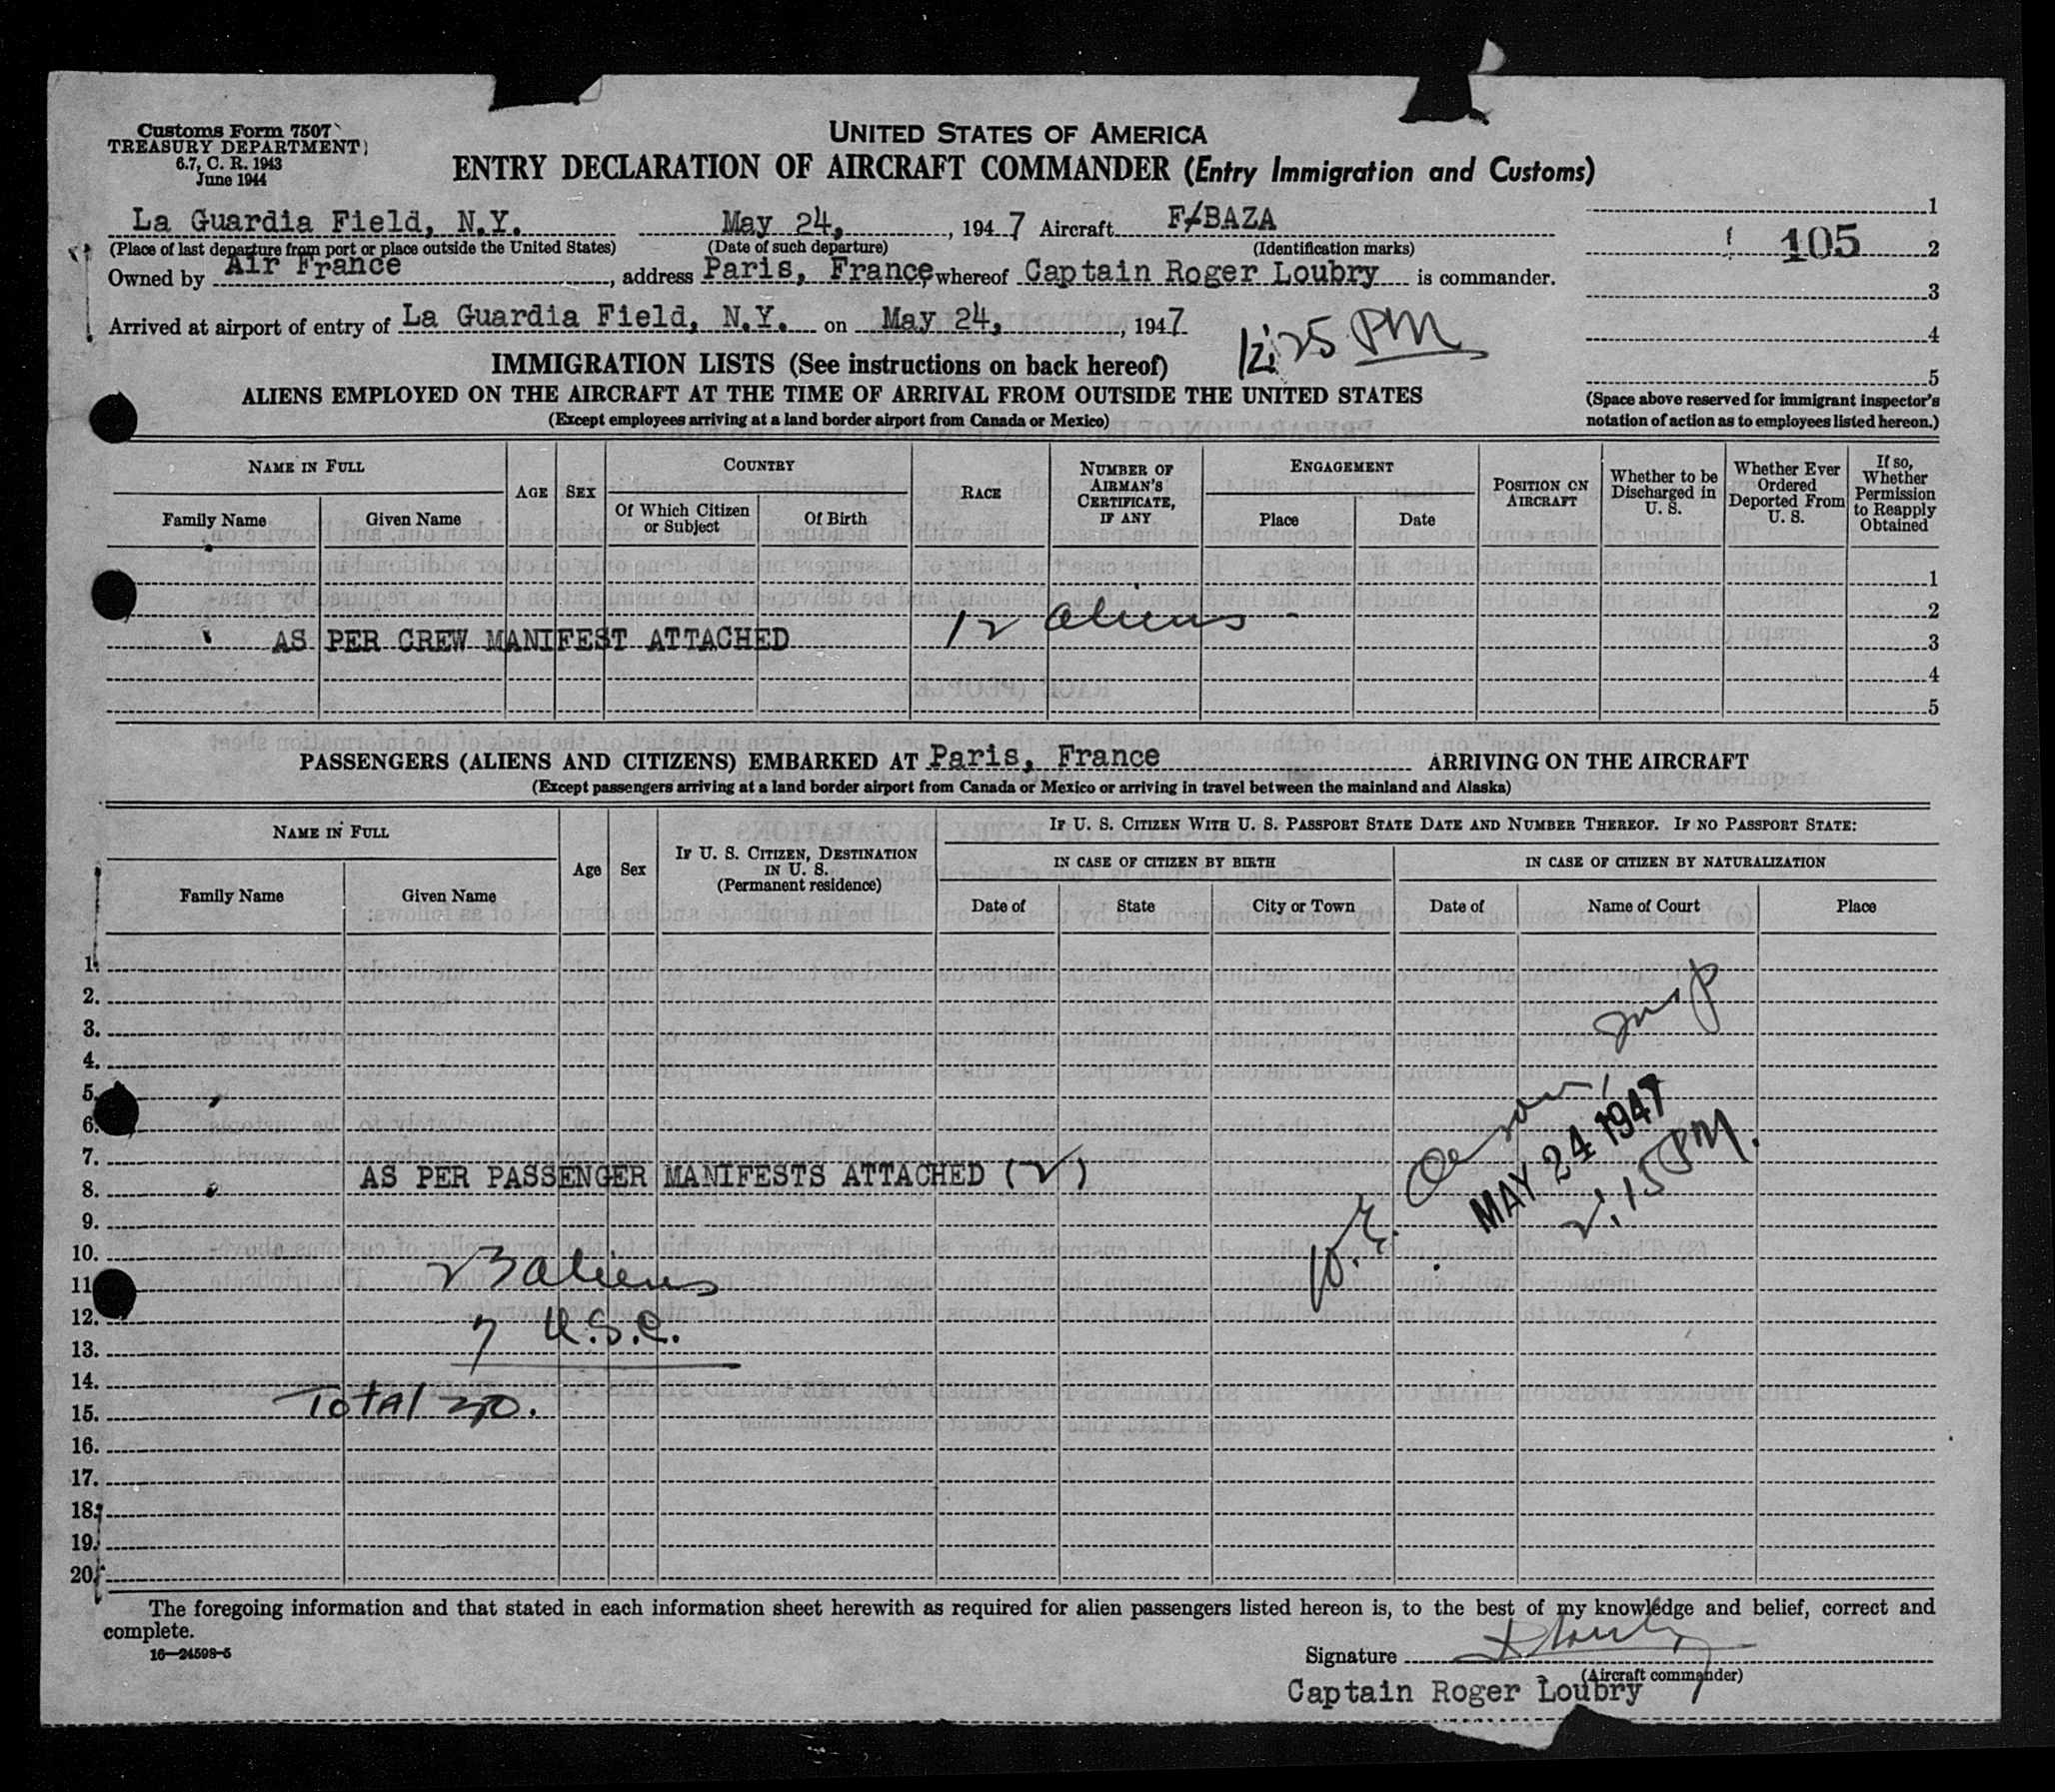 Customs Form 7507
TREASURY DEPARTMENT
6.7, C. R. 1943
June 1944
UNITED STATES OF AMERICA
ENTRY DECLARATION OF AIRCRAFT COMMANDER (Entry Immigration and Customs)
La Guardia Field, N.Y. May 24, , 194 7 Aircraft F-BAZA
(Place of last departure from port or place outside the United States) (Date of such departure) (Identification marks)
Owned by Air France , address Paris, France, whereof Captain Roger Loubry is commander.
Arrived at airport of entry of La Guardia Field, N.Y. on May 24, , 1947
12:25 PM
1
105 2
3
4
5
(Space above reserved for immigrant inspector's
notation of action as to employees listed hereon.)
IMMIGRATION LISTS (See instructions on back hereof)
ALIENS EMPLOYED ON THE AIRCRAFT AT THE TIME OF ARRIVAL FROM OUTSIDE THE UNITED STATES
(Except employees arriving at a land border airport from Canada or Mexico)
NAME IN FULL
Family Name Given Name
AGE SEX
COUNTRY
Of Which Citizen or Subject Of Birth
RACE
NUMBER OF AIRMAN'S CERTIFICATE, IF ANY
ENGAGEMENT
Place Date
POSITION ON AIRCRAFT
Whether to be Discharged in U. S.
Whether Ever Ordered Deported From U. S.
If so, Whether Permission to Reapply Obtained
1
2
AS PER CREW MANIFEST ATTACHED 12 aliens - 3
4
5
PASSENGERS (ALIENS AND CITIZENS) EMBARKED AT Paris, France ARRIVING ON THE AIRCRAFT
(Except passengers arriving at a land border airport from Canada or Mexico or arriving in travel between the mainland and Alaska)
NAME IN FULL
Family Name Given Name
Age Sex
IF U. S. CITIZEN, DESTINATION IN U. S.
(Permanent residence)
IF U. S. CITIZEN WITH U. S. PASSPORT STATE DATE AND NUMBER THEREOF. IF NO PASSPORT STATE:
IN CASE OF CITIZEN BY BIRTH IN CASE OF CITIZEN BY NATURALIZATION
Date of State City or Town Date of Name of Court Place
1.
2.
3.
4.
5.
6.
7.
8. AS PER PASSENGER MANIFESTS ATTACHED (2)
MAY 24 1947
2:15 PM.
9.
10.
11. 23 aliens
12.
13. 7 U.S.C.
14.
15. Total 30.
16.
17.
18.
19.
20.
The foregoing information and that stated in each information sheet herewith as required for alien passengers listed hereon is, to the best of my knowledge and belief, correct and
complete.
16—24598-5
Signature Loubry
(Aircraft commander)
Captain Roger Loubry